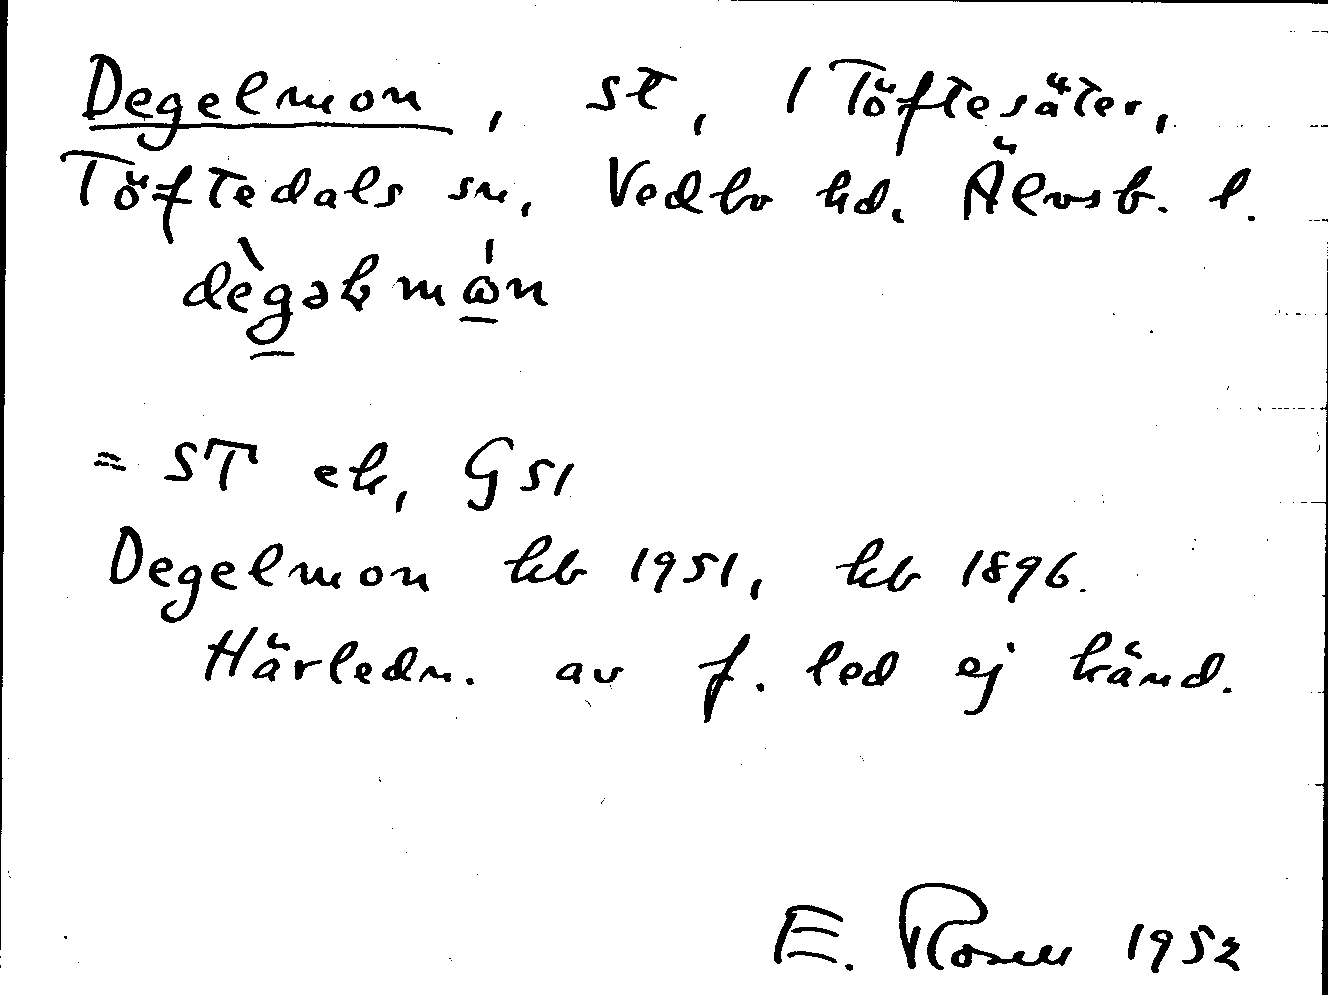 Degelmon, st, 1 Töftesäter,
Töftedals sn, Vedbo hd. Älvsb. l.
dègəlmɷ́n
= ST ek, G51
Degelmon kb 1951, kb 1896.
Härledn. av f. led ej känd.
E. Rosell 1952